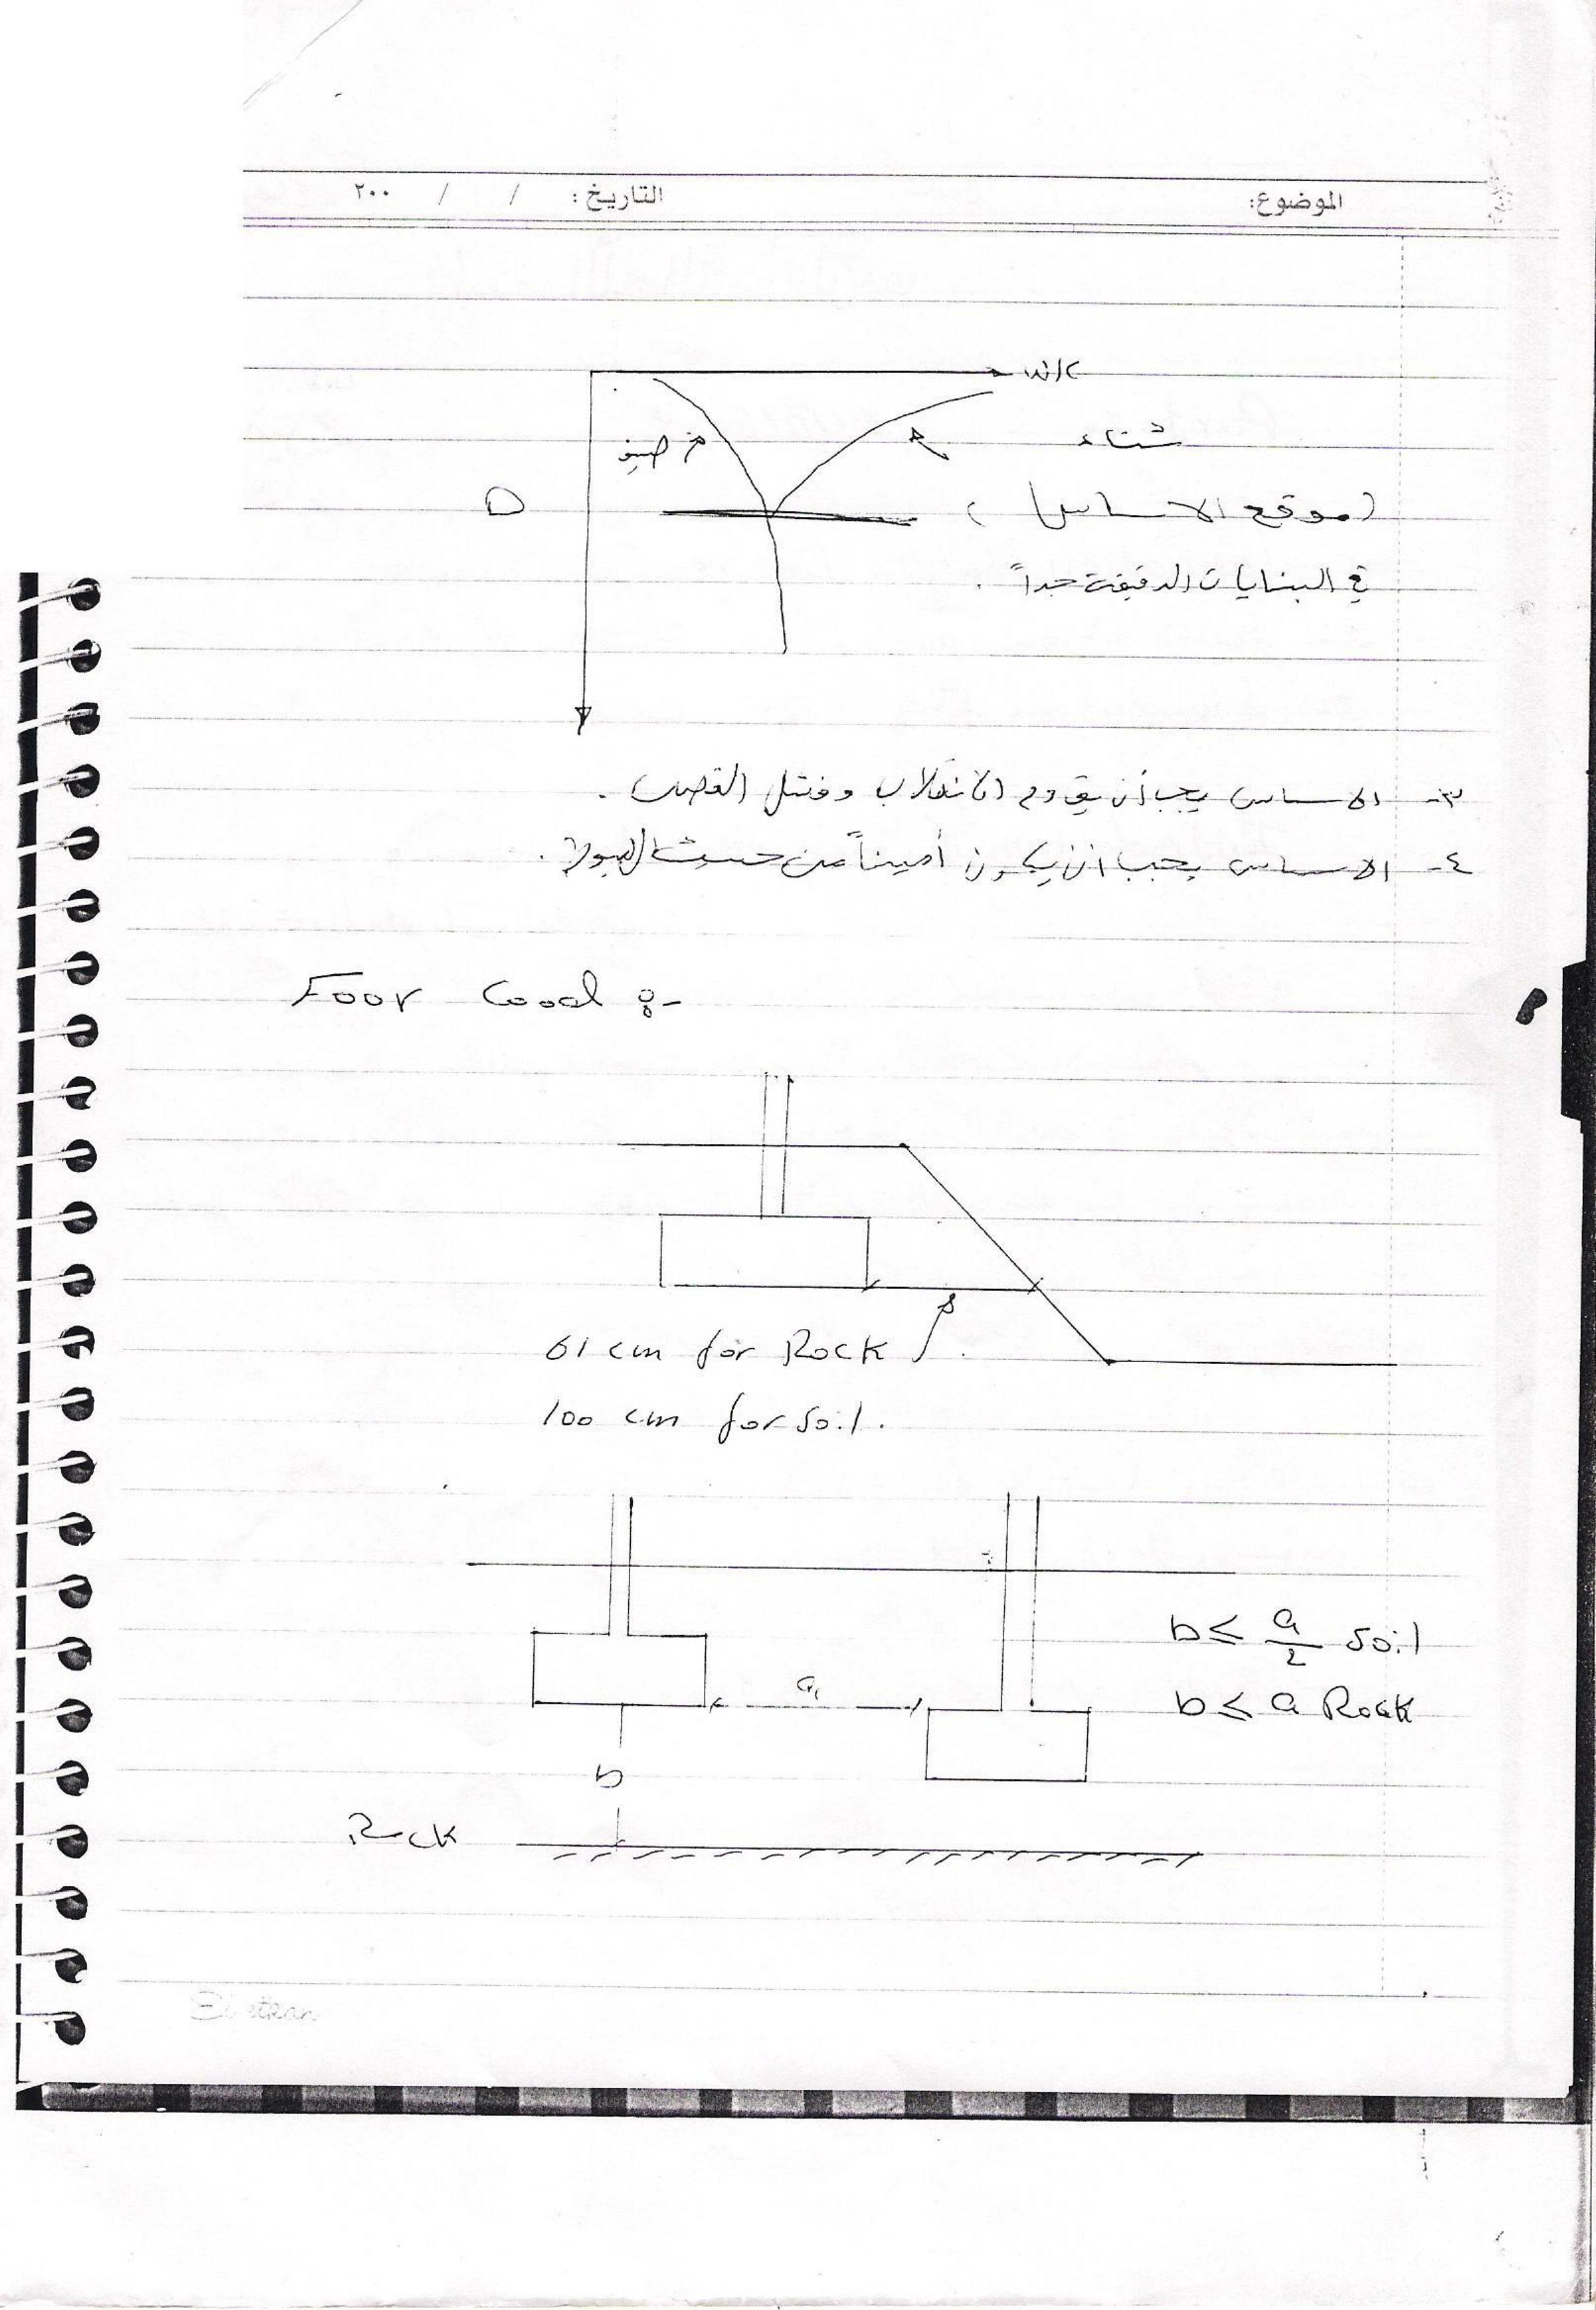 الموضوع: التاريخ: / / ٢٠٠
w/c
صيف شتاء
D (موقع الاساس)
في البنايات الدقيقة جداً.
٣- الاساس يجب أن يقاوم الانقلاب وفشل القص.
٤- الاساس يجب ان يكون أميناً من حيث الهبوط.
Foor Good :-
61 cm for Rock
100 cm for soil.
b ≤ a/2 soil
a
b ≤ a Rock
b
Rock